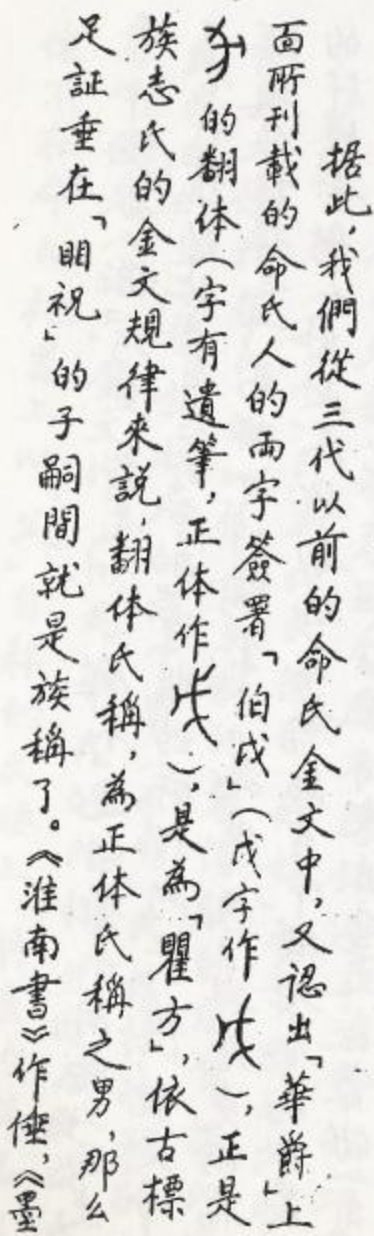 据此，我們從三代以前的命氏金文中，又認出「華爵」上
面所刊載的命氏人的両字簽署「伯戉」（戉字作），正是
的翻体（字有遺筆，正体作），是為「瞿方」，依古標
族志氏的金文規律來説，翻体氏稱，為正体氏稱之男，那么
足証垂在「明祝」的子嗣間就是族稱了。《淮南書》作倕，《墨